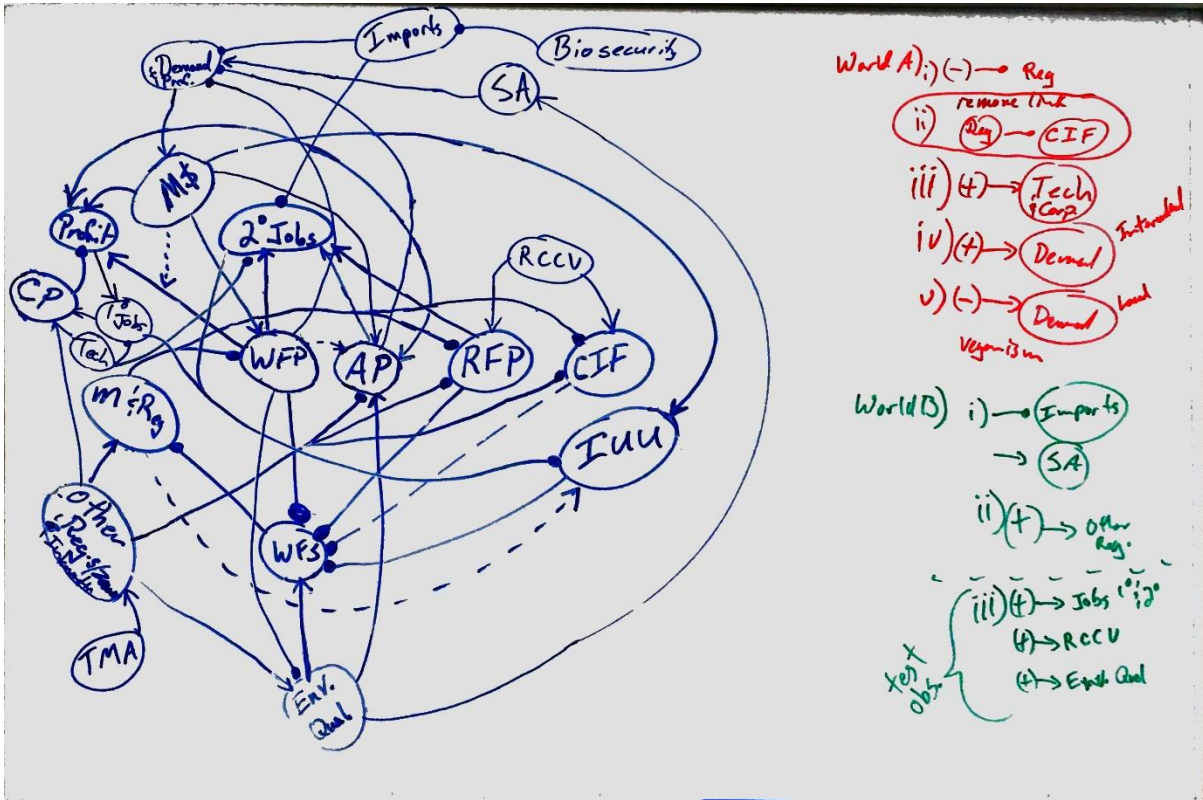 Imports
Biosecurity
Demand
& Pref.
SA
M$
Profit
2° Jobs
RCCV
CP
1°
Jobs
Tech
WFP
AP
RFP
CIF
M & Reg
IUU
Other
Reg
WFS
TMA
Env.
Qual
World A) i) (-) → Reg
remove link
ii) Reg — CIF
iii) (+) → Tech
& Corp.
iv) (+) → Demand
v) (-) → Demand Local
veganism
World B) i) —• Imports
→ SA
ii) (+) → Other
Reg.
iii) (+) → Jobs 1° & 2°
(+) → RCCV
(+) → Envt Qual
test
obs.